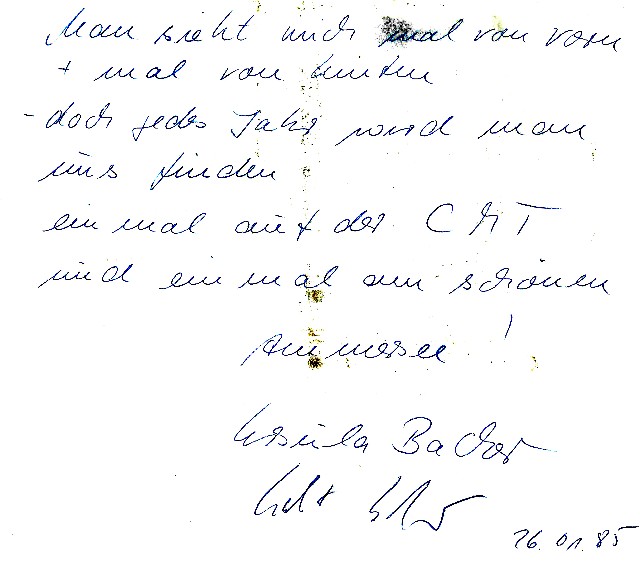 Man sieht mich mal von vorn
+ mal von hinten
- doch jedes Jahr wird man
uns finden
ein mal auf der CMT
und ein mal am schönen
Ammersee !
Ursula Bacher
26.01.85